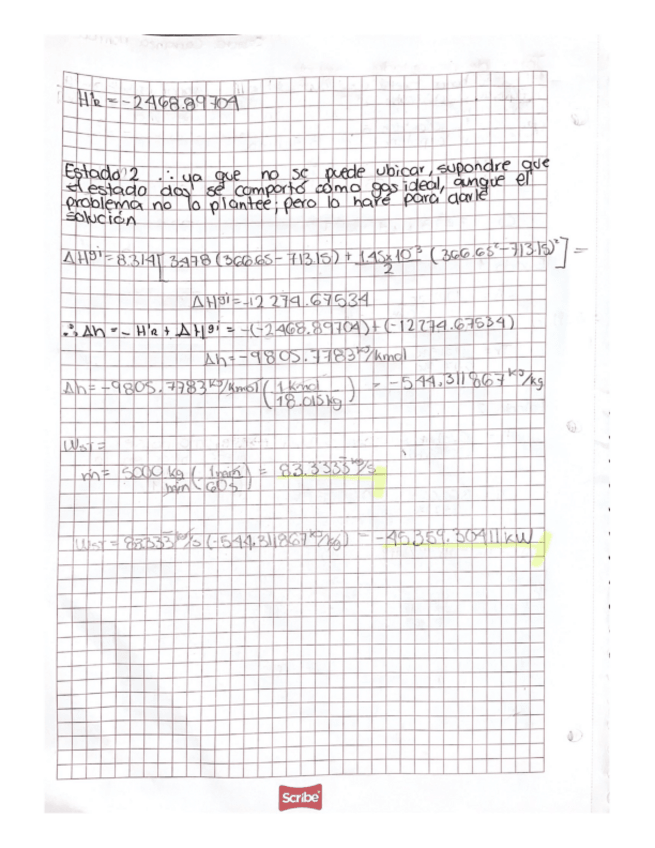 H'R = -2468.89704
Estado 2 ∴ ya que no se puede ubicar, supondre que
el estado dos se comporto como gas ideal, aunque el
problema no lo plantee; pero lo haré para darle
solución
ΔHgi = 8.314[3.478(366.65 - 713.15) + 1.45x10⁻³/2 (366.65² - 713.15)²] =
ΔHgi = -12 274.67534
∴ Δh = - H'R + ΔHgi = -(-2468.89704) + (-12274.67534)
Δh = -9805.7783 kJ/kmol
Δh = -9805.7783 kJ/kmol (1 kmol / 18.015 kg) = -544.311867 kJ/kg
WST =
ṁ = 5000 kg/min (1 min / 60 s) = 83.3333 kg/s
WST = 83.333 kg/s (-544.311867 kJ/kg) = -45359.30411 kW
Scribe